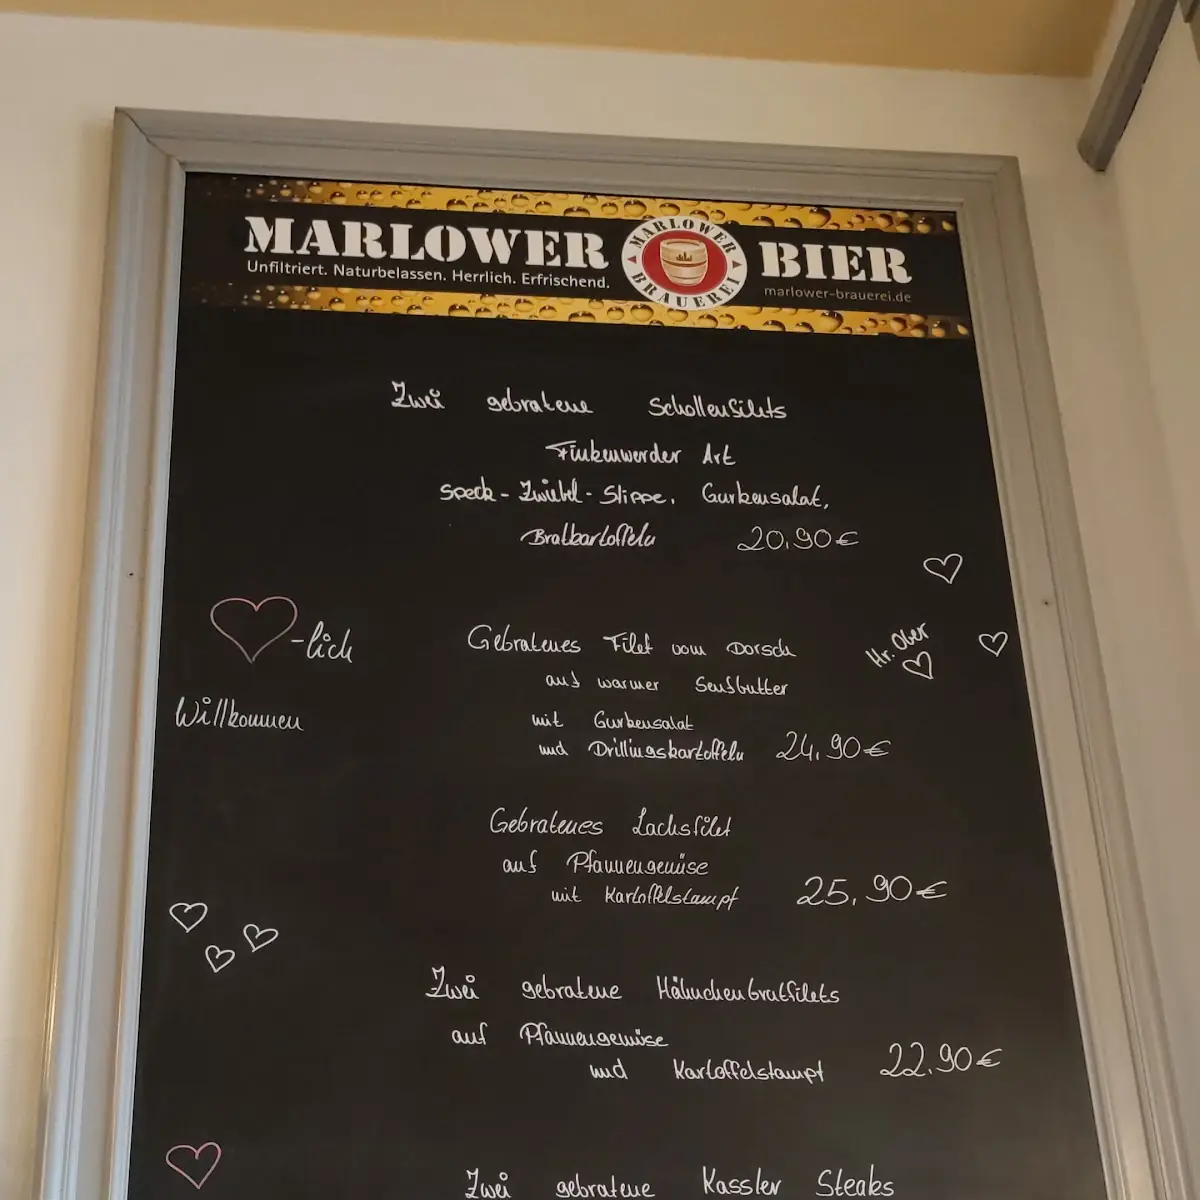 MARLOWER BIER
Unfiltriert. Naturbelassen. Herrlich. Erfrischend.
marlower-brauerei.de
MARLOWER
BRAUEREI
Zwei gebratene Schollenfilets
Finkenwerder Art
Speck-Zwiebel-Stippe, Gurkensalat,
Bratkartoffeln 20,90€
-lich
Willkommen
Gebratenes Filet vom Dorsch
auf warmer Senfbutter
mit Gurkensalat
und Drillingskartoffeln 24,90€
Hr. Ober
Gebratenes Lachsfilet
auf Pfannengemüse
mit Kartoffelstampf 25,90€
Zwei gebratene Hähnchenbrutfilets
auf Pfannengemüse
und Kartoffelstampf 22.90€
Zwei gebratene Kassler Steaks